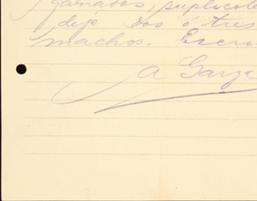 ganados, suplicole
deje dos ó tres
machos. Escri
A Garze